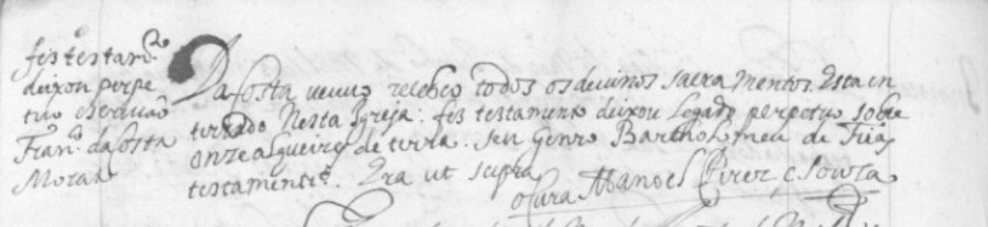 fes testam.to
deixou perpe
tuo
Fran.co da Costa
Da Costa viuvo recebeo todos os devinos sacra mentos. Esta en
terrado Nesta Igreja. fes testamento deixou Legado perpetuo sobre
onze alqueires de terra. seu Genro Bartholomeu de Frias
testamentr.o. Era ut supra
o Cura Manoel Pirez e Souza